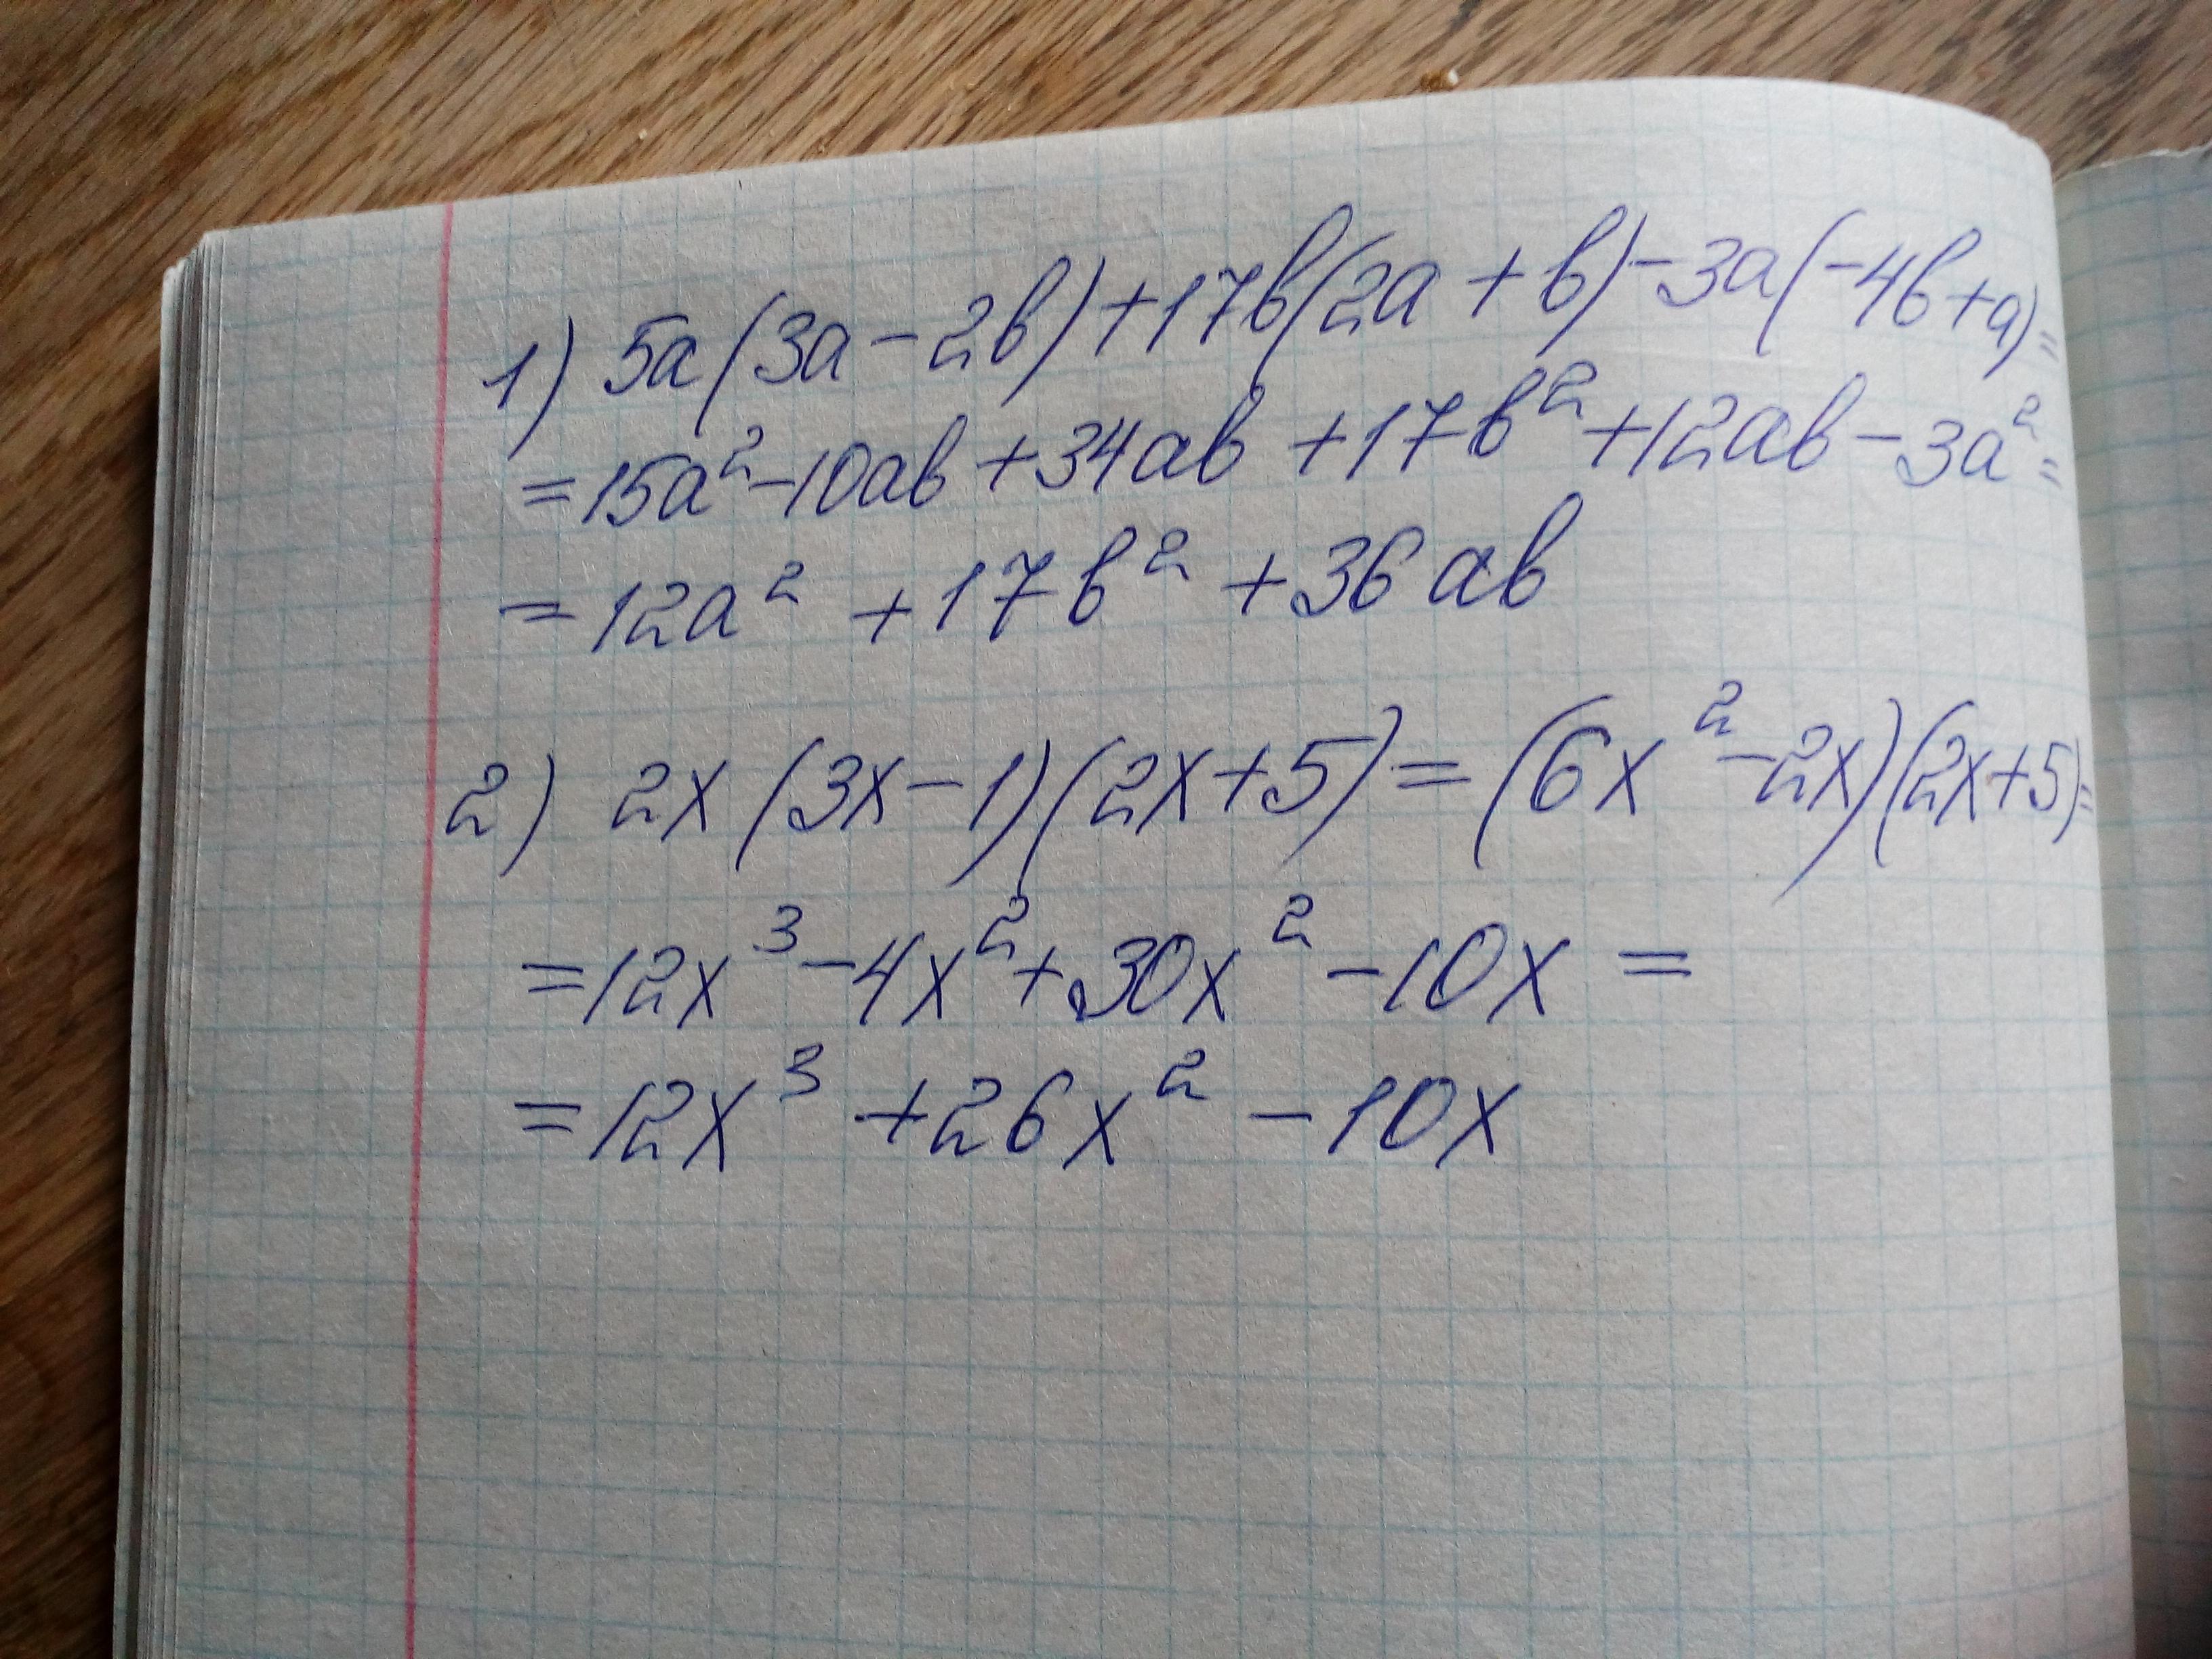 1) 5a(3a-2b)+17b(2a+b)-3a(-4b+a)=
=15a²-10ab+34ab+17b²+12ab-3a²=
=12a²+17b²+36ab
2) 2x(3x-1)(2x+5)=(6x²-2x)(2x+5)=
=12x³-4x²+30x²-10x=
=12x³+26x²-10x